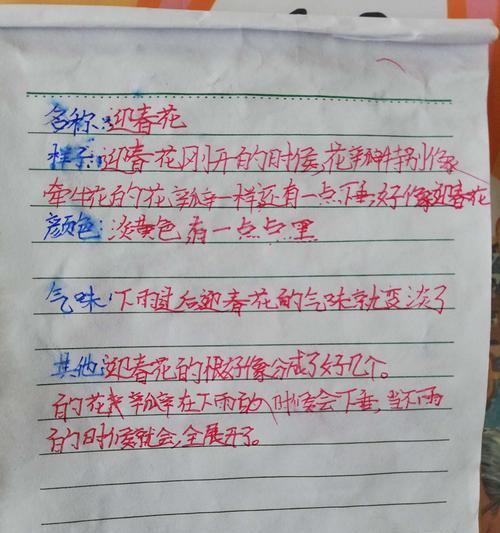 名称:迎春花
样子:迎春花刚开的时候,花瓣特别像
牵牛花的花瓣一样还有一点下垂,好像迎春花
颜色:淡黄色有一点点黑
气味:下雨过后迎春花的气味就变淡了
其他:迎春花的根好像分成了好几个。
的花瓣在下雨的时候会下垂,当不雨
的时候就会,全展开了。